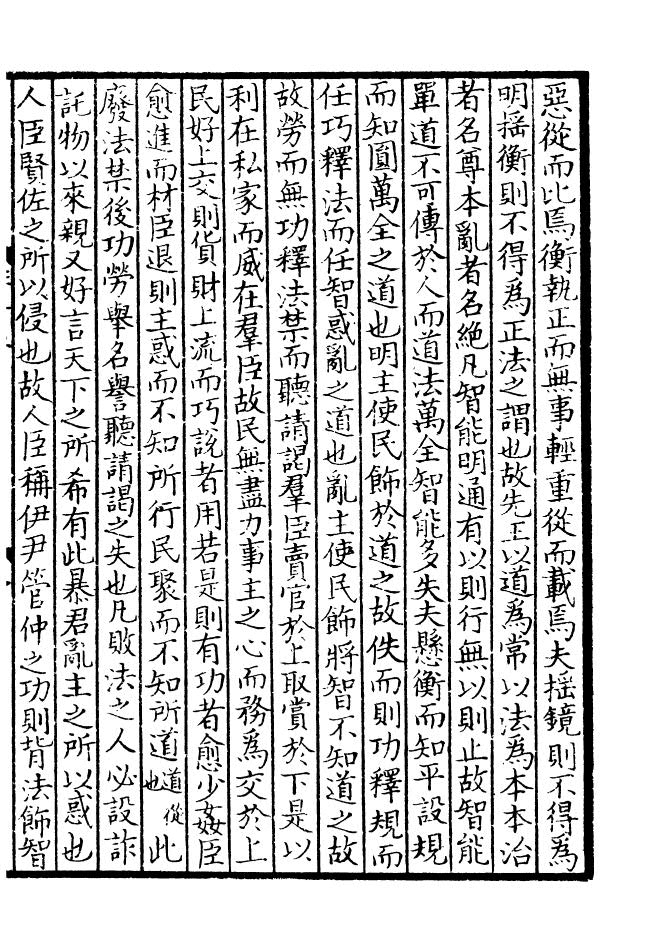 惡從而比焉衡執正而無事輕重從而載焉夫揺鏡則不得爲
明揺衡則不得爲正法之謂也故先王以道爲常以法爲本本治
者名尊本亂者名絶凡智能明通有以則行無以則止故智能
單道不可傳於人而道法萬全智能多失夫懸衡而知平設規
而知圓萬全之道也明主使民飾於道之故佚而則功釋規而
任巧釋法而任智惑亂之道也亂主使民飾將智不知道之故
故勞而無功釋法禁而聽請謁羣臣賣官於上取賞於下是以
利在私家而威在羣臣故民無盡力事主之心而務爲交於上
民好上交則貨財上流而巧說者用若是則有功者愈少姦臣
愈進而材臣退則主惑而不知所行民聚而不知所道道從也此
廢法禁後功勞舉名譽聽請謁之失也凡敗法之人必設詐
託物以來親又好言天下之所希有此暴君亂主之所以惑也
人臣賢佐之所以侵也故人臣稱伊尹管仲之功則背法飾智